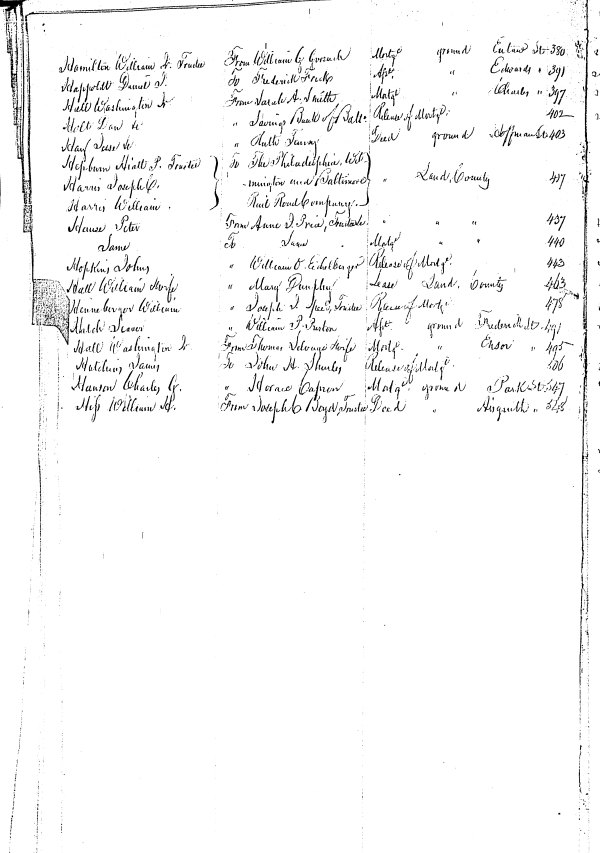 Hamilton William H. Trustee From William G. Mortg.e ground Eutaw St. 380
Happoldt Daniel J. To Frederick Fock Afst. " Edwards " 391
Hall Washington From Sarah A. Smith Mortg.e " Charles " 397
Holt Dan " Savings Bank of Balt.o Release of Mortg.e 402
" Ruth Deed ground Hoffman St. 403
Hepburn Hiatt P. Trustee To The Philadelphia, Wil-
Harris Joseph C. mington and Baltimore " Land, County 417
Harris William Rail Road Company
House Peter From Anne Price, " " " 437
Same To Same Mortg.e " " 440
Hopkins Johns " William Eichelberger Release of Mortg.e 443
Hall William & wife " Mary Dunphy Lease Land, County 463
Henneberger William " Joseph J. Trustee Release of Mortg.e 478
Hatch " William P. Preston Afst. ground Frederick St. 491
Hall Washington From Thomas & wife Mortg.e " Ensor " 495
Hutchins James To John H. Release of Mortg.e 506
Hanson Charles G. " Horace Capron Mortg.e ground Park St. 547
Hiss William H. From Joseph C. Boyd, Trustee Deed " Aisquith "